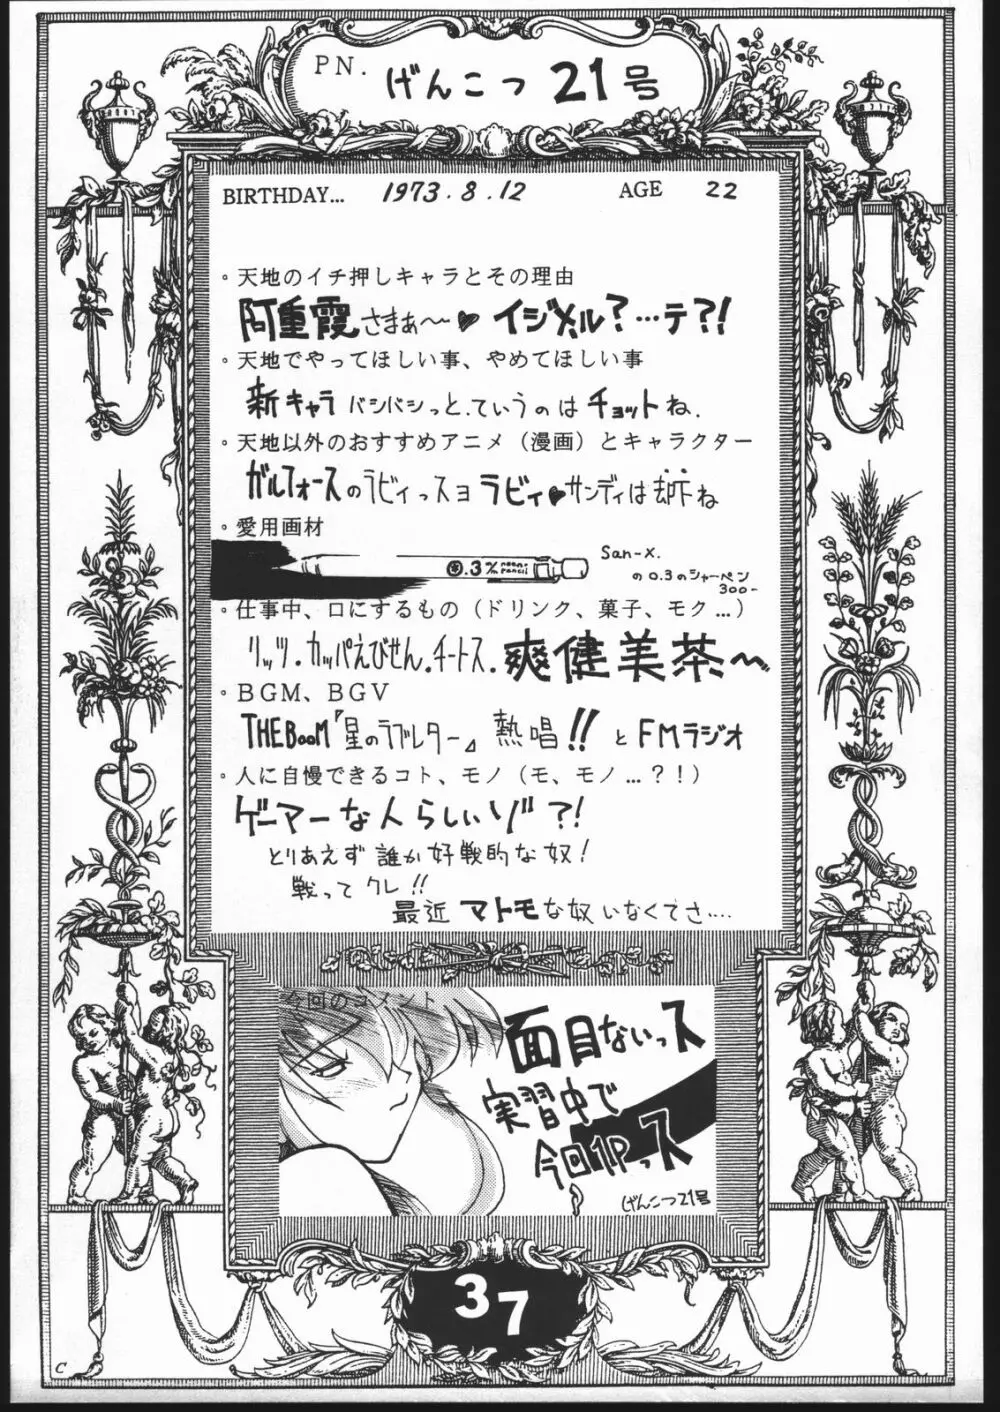 PN. げんこつ21号
BIRTHDAY... 1973.8.12 AGE 22
。天地のイチ押しキャラとその理由
阿重霞さまぁ〜♥イジメル?…テ?!
。天地でやってほしい事、やめてほしい事
新キャラバシバシっと.ていうのはチョットね.
。天地以外のおすすめアニメ（漫画）とキャラクター
ガルフォースのラビィっスヨラビィ♥サンディは却下ね
。愛用画材
0.3% pencil San-x.
の0.3のシャーペン
300-
。仕事中、口にするもの（ドリンク、菓子、モク…）
リッツ.カッパえびせん.チートス.爽健美茶〜
。BGM、BGV
THE BOOM『星のラブレター』熱唱!!とFMラジオ
。人に自慢できるコト、モノ（モ、モノ…？！）
ゲーマーな人らしいゾ?!
とりあえず誰か好戦的な奴!
戦ってクレ!!
最近マトモな奴いなくてさ....
今回のコメント
面目ないっス
実習中で
今回1Pっス
げんこつ21号
37
C